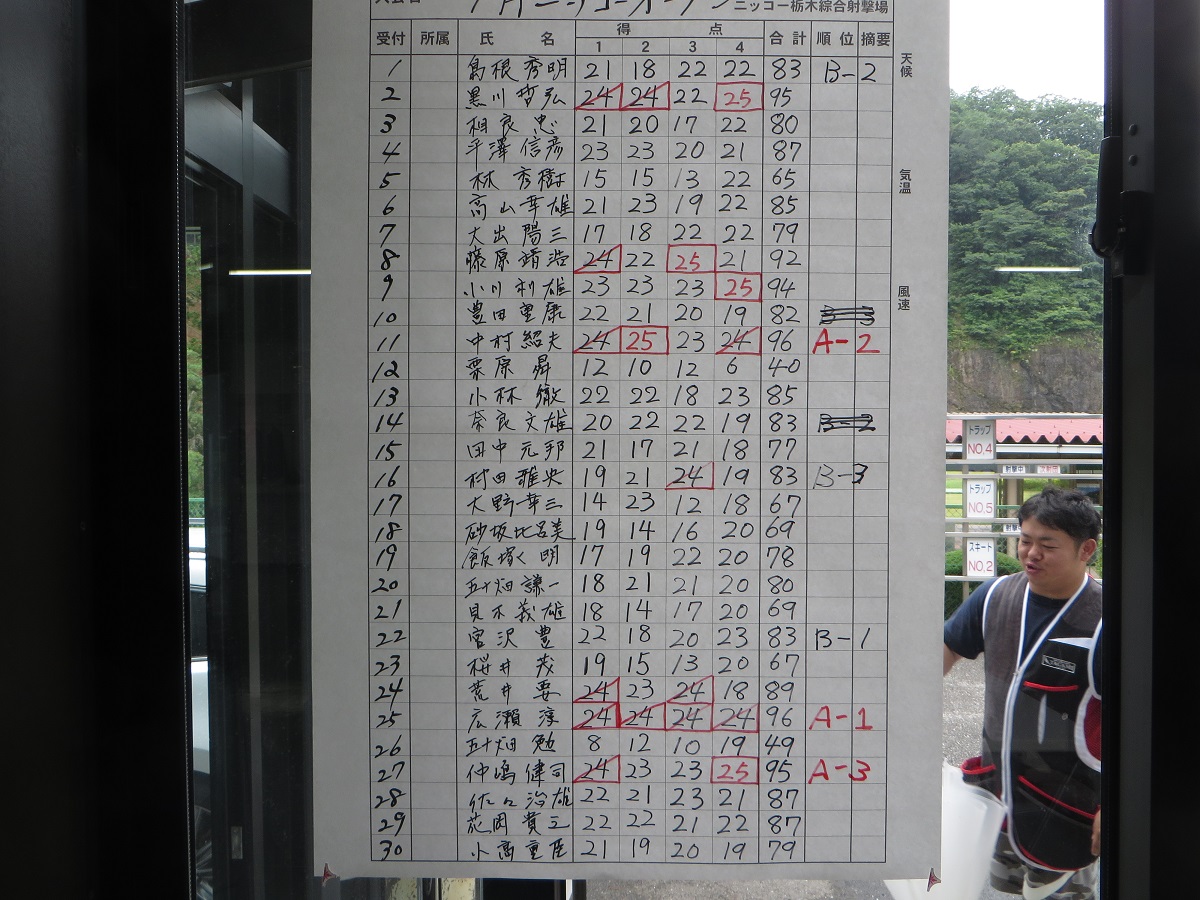 7月ニッコーオープン ニッコー栃木綜合射撃場
受付 所属 氏名 得点 合計 順位 摘要
1 2 3 4
天候
気温
風速
1 島根秀明 21 18 22 22 83 B-2
2 黒川哲弘 24 24 22 25 95
3 相良忠 21 20 17 22 80
4 平澤信彦 23 23 20 21 87
5 林秀樹 15 15 13 22 65
6 高山幸雄 21 23 19 22 85
7 大出陽三 17 18 22 22 79
8 藤原靖浩 24 22 25 21 92
9 小川利雄 23 23 23 25 94
10 豊田望康 22 21 20 19 82
11 中村紹夫 24 25 23 24 96 A-2
12 栗原昇 12 10 12 6 40
13 小林徹 22 22 18 23 85
14 奈良文雄 20 22 22 19 83 B-2
15 田中元邦 21 17 21 18 77
16 村田雅央 19 21 24 19 83 B-3
17 大野幸三 14 23 12 18 67
18 砂坂比呂美 19 14 16 20 69
19 飯塚明 17 19 22 20 78
20 五十畑謙一 18 21 21 20 80
21 見木義雄 18 14 17 20 69
22 宮沢豊 22 18 20 23 83 B-1
23 桜井茂 19 15 13 20 67
24 荒井要 24 23 24 18 89
25 広瀬淳 24 24 24 24 96 A-1
26 五十畑勉 8 12 10 19 49
27 仲嶋健司 24 23 23 25 95 A-3
28 治雄 22 21 23 21 87
29 花岡貴 22 22 21 22 87
30 小高重臣 21 19 20 19 79
トラップ
NO,4
射撃中
トラップ
NO,5
スキート
NO,2